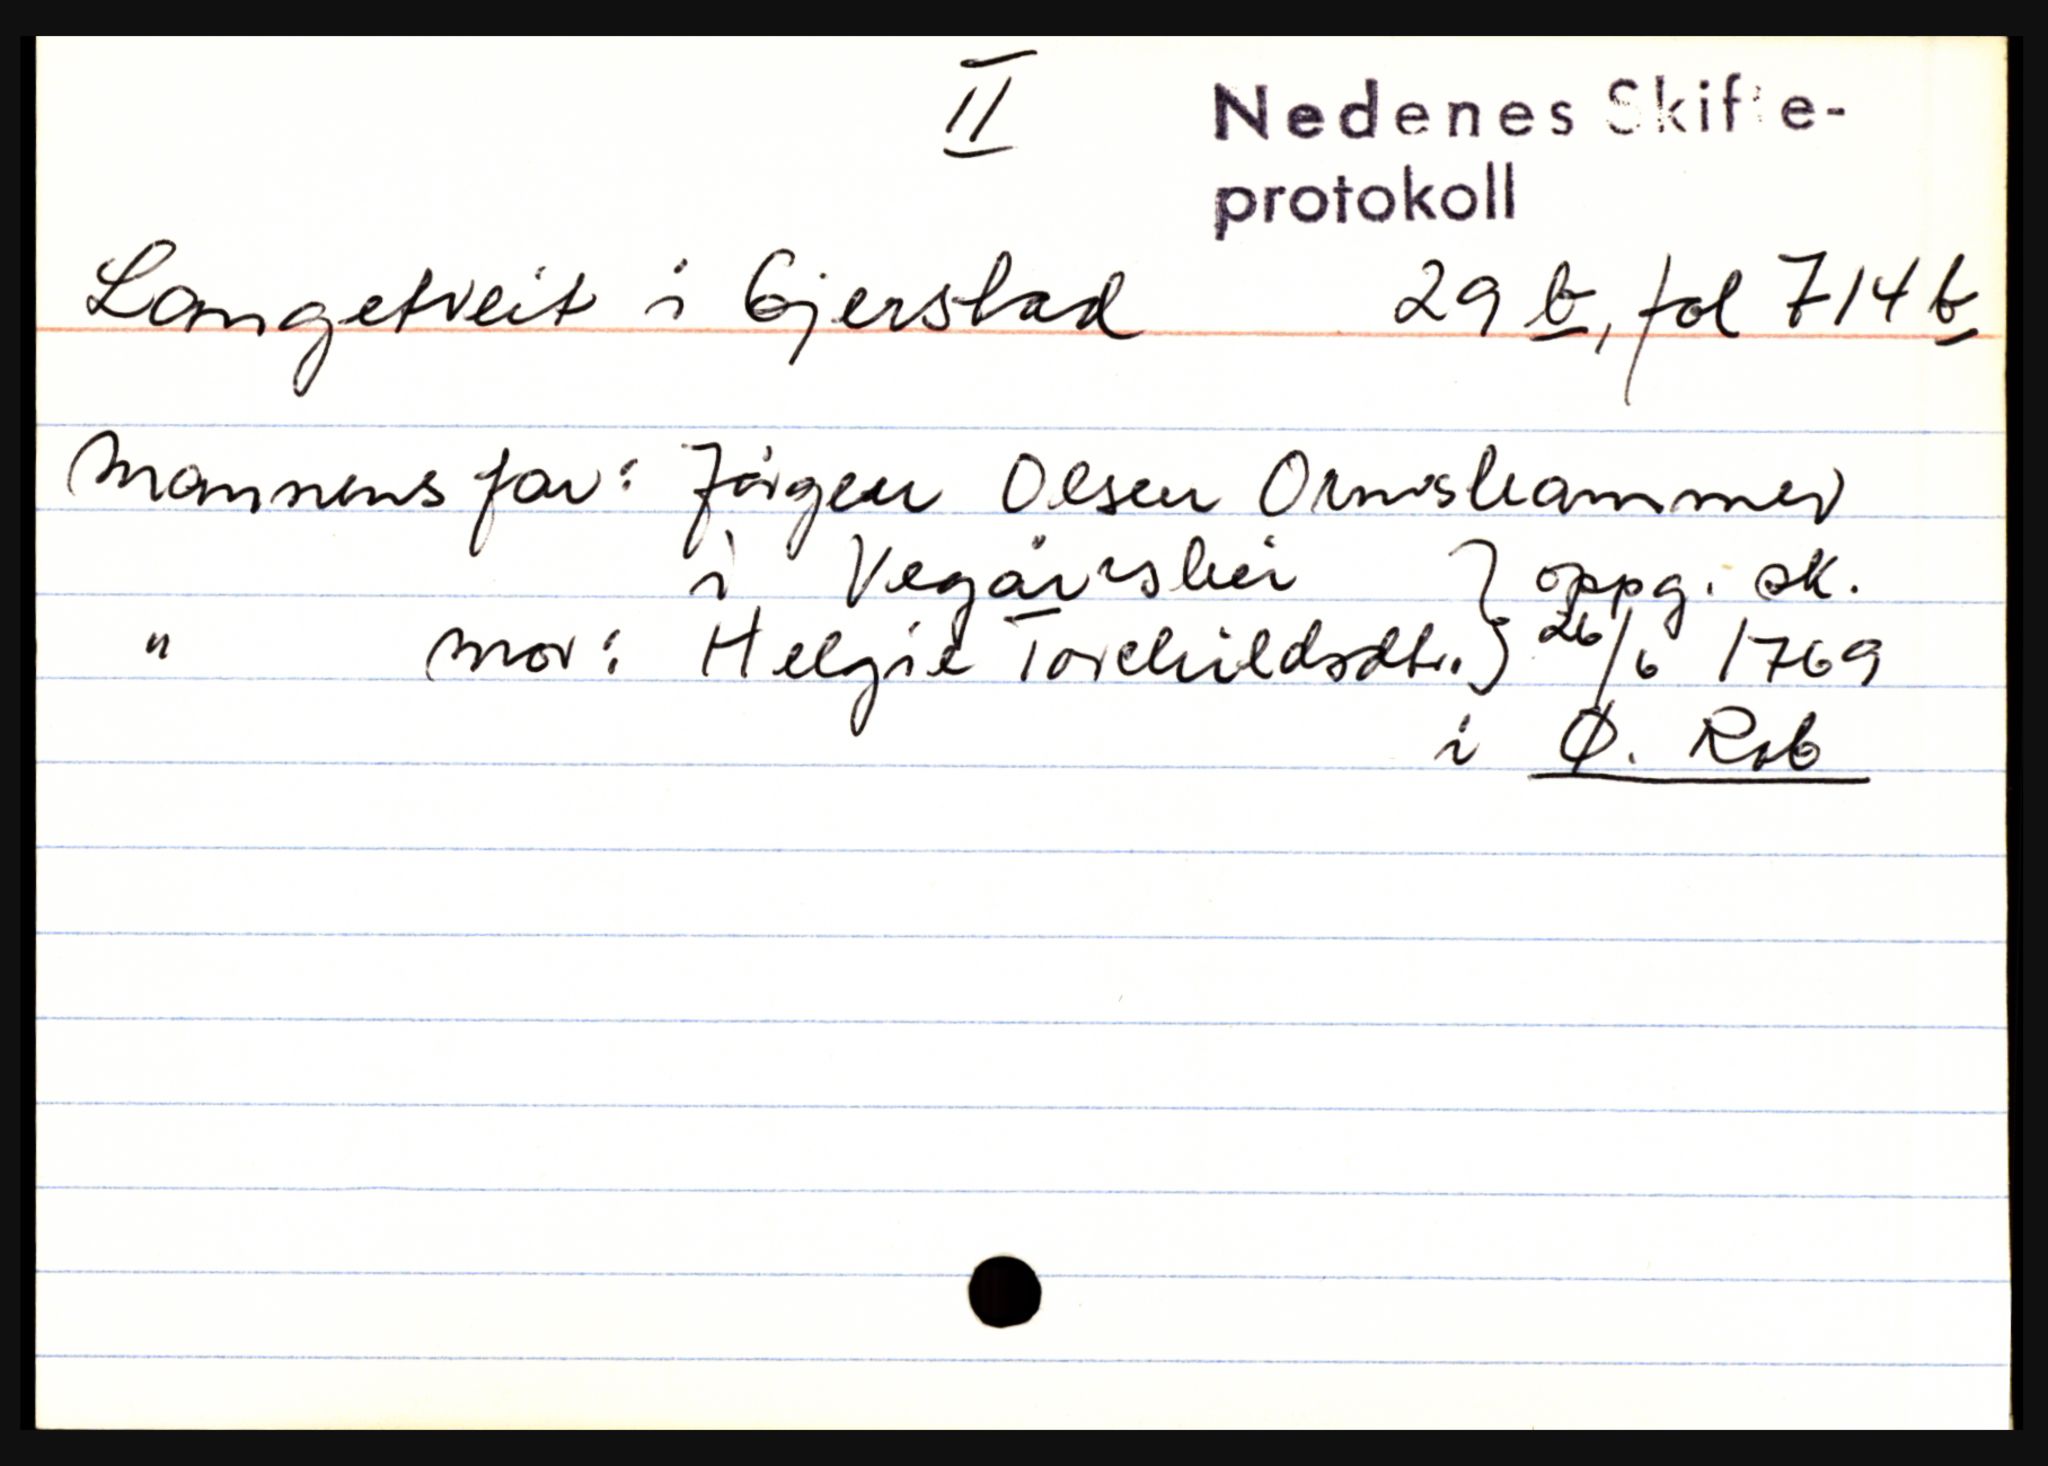 II
Nedenes Skifte-
protokoll
Langetveit i Gjerstad 29 b, fol 714 b
Mannens far: Jörgen Olsen Ormshammer
i Vegårshei } oppg. sk.
" mor: Helgie Torchildsdtr. } 26/6 1769
i Ø. Rsb